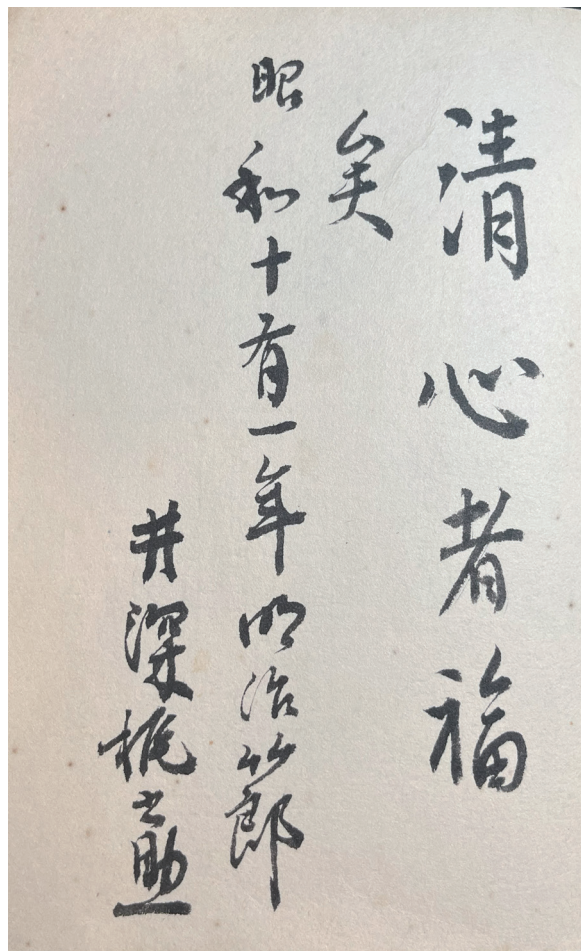 清心者福
矣
昭和十有一年明治節
井深梶之助